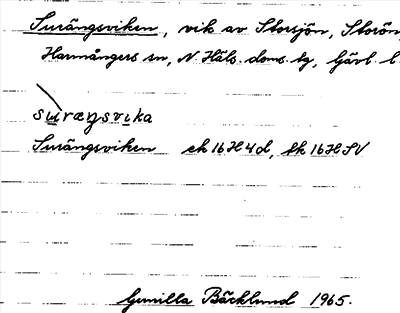 Surängsviken, vik av Storsjön, Storön,
Harmångers sn, N. Häls. doms. tg, Gävl. l.
suræŋsvika
Surängsviken ek 16H4d, tk 16HSV
Gunilla Bäcklund 1965.